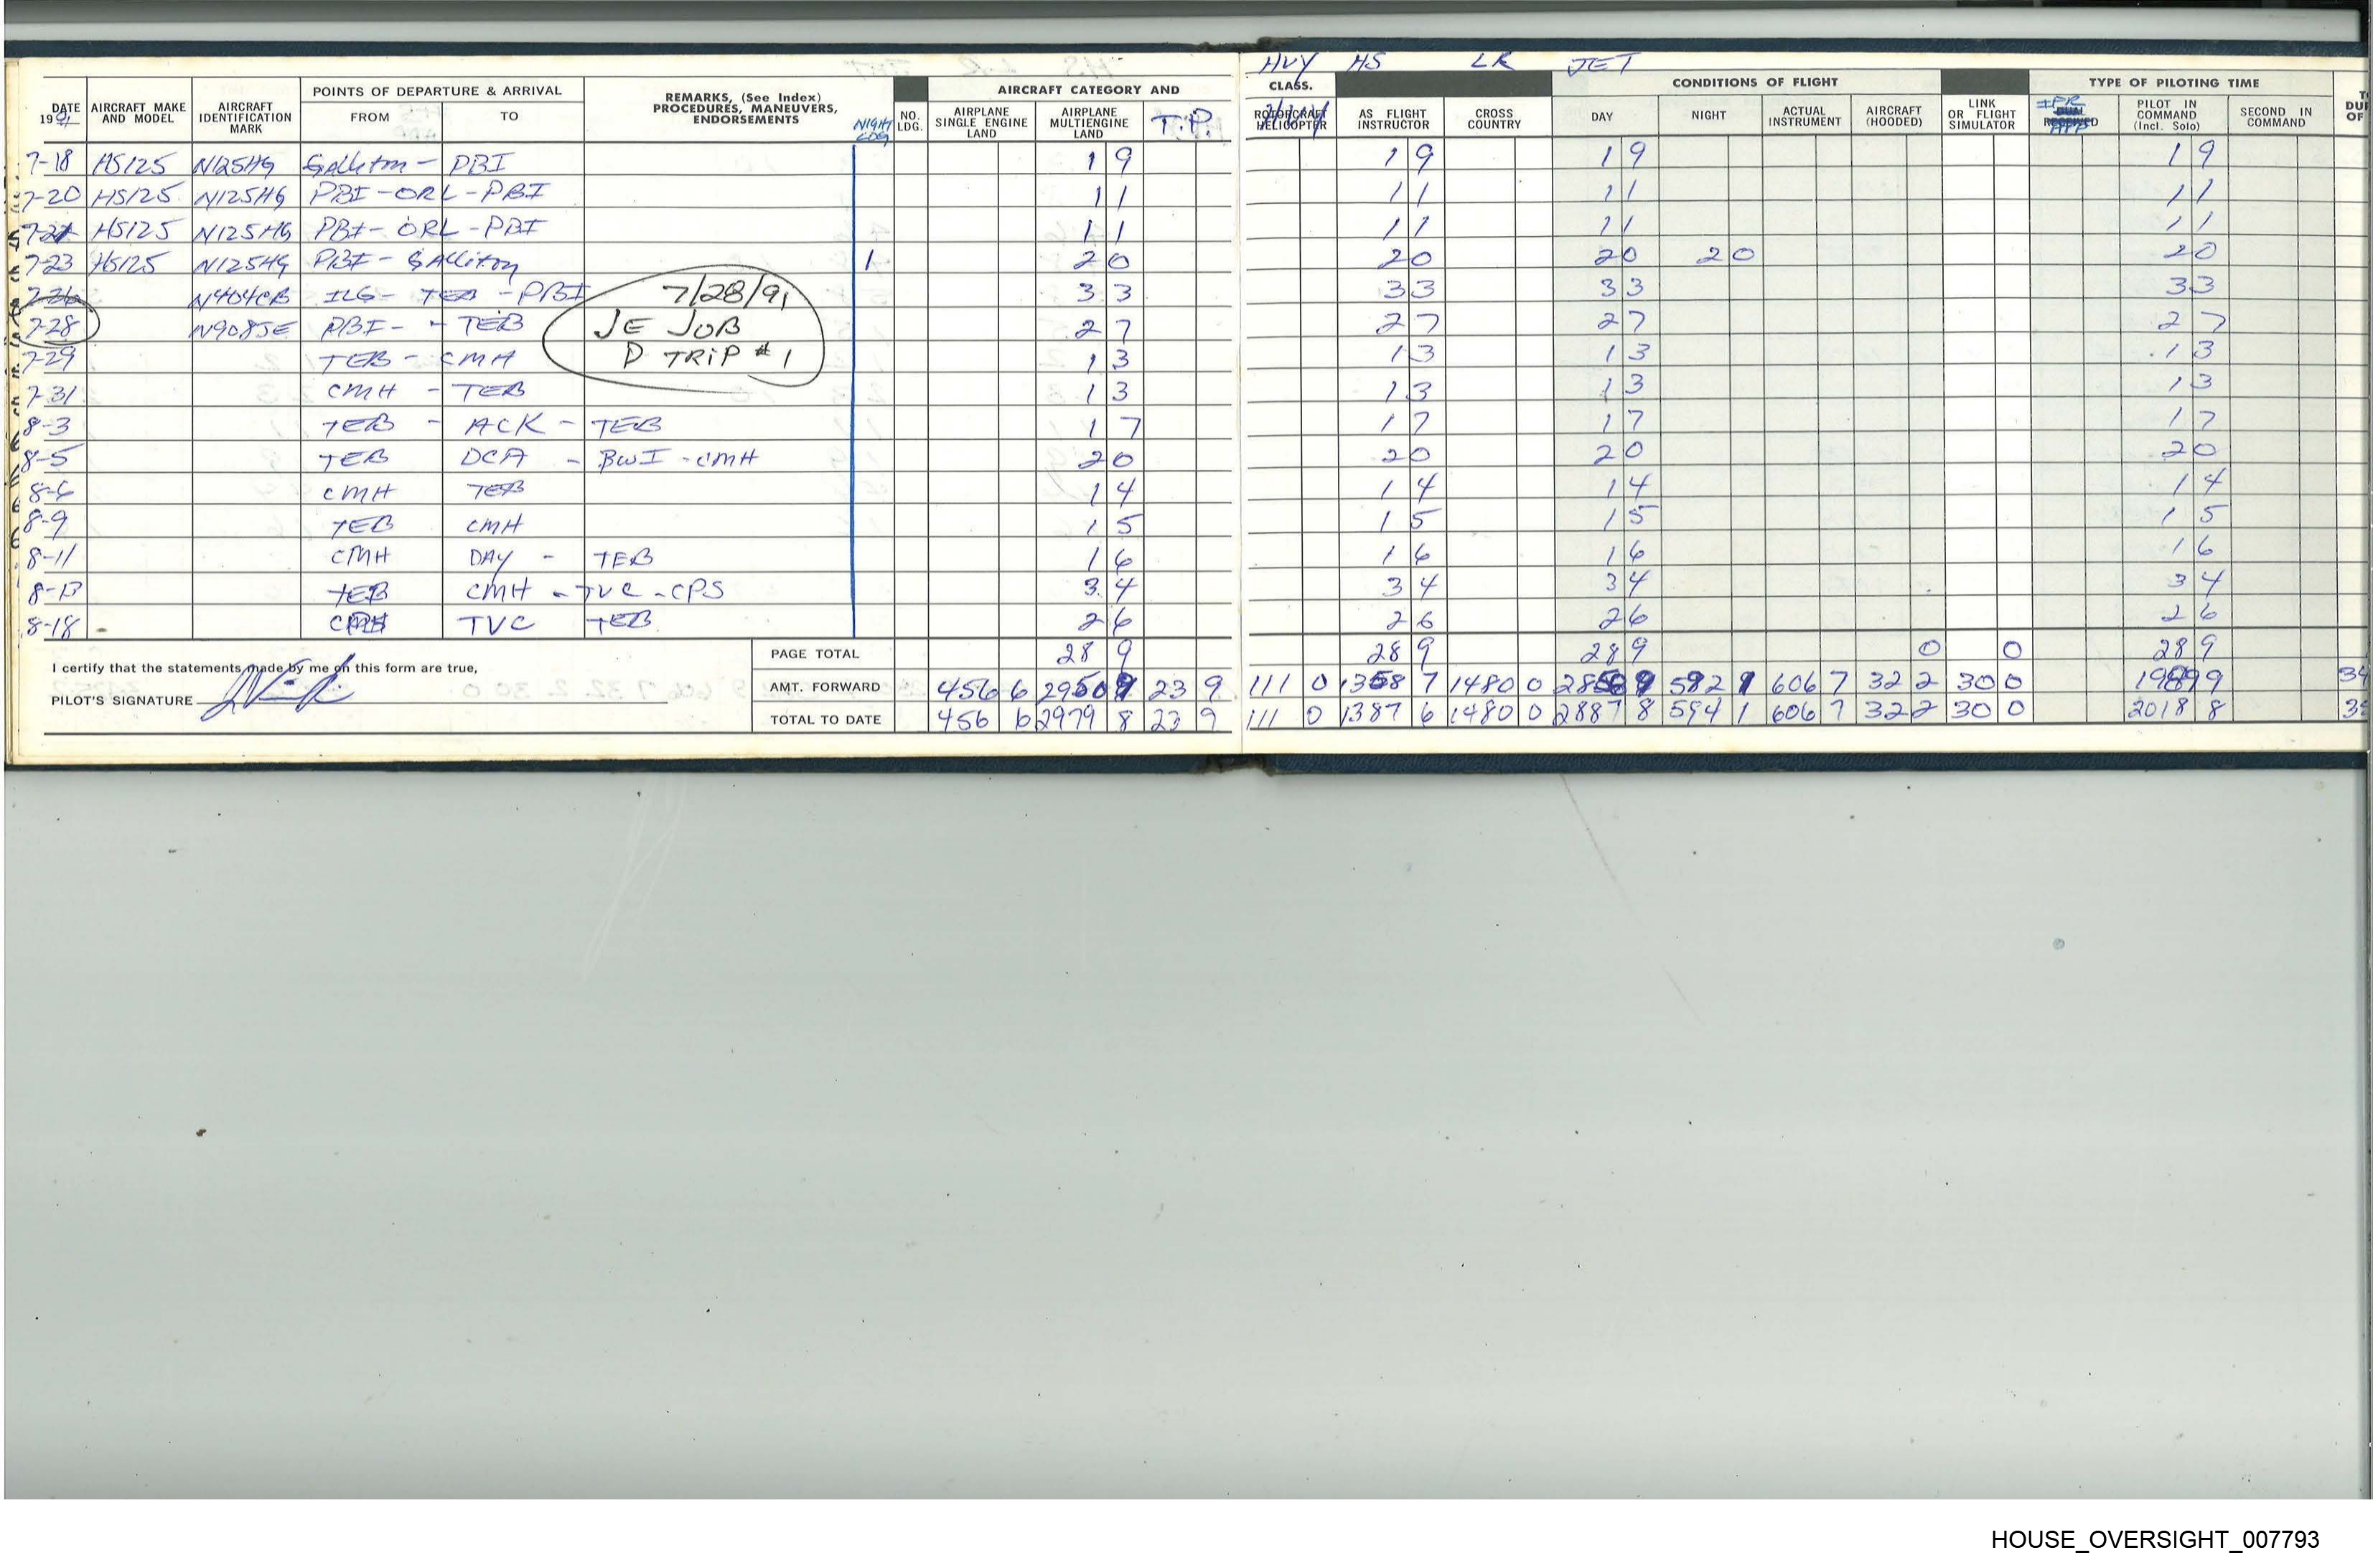 HVY HS LR JET
DATE 1991 AIRCRAFT MAKE AND MODEL AIRCRAFT IDENTIFICATION MARK POINTS OF DEPARTURE & ARRIVAL FROM TO REMARKS, (See Index) PROCEDURES, MANEUVERS, ENDORSEMENTS NIGHT LDG NO. LDG. AIRCRAFT CATEGORY AND AIRPLANE SINGLE ENGINE LAND AIRPLANE MULTIENGINE LAND T.P. CLASS. ROTORCRAFT HELICOPTER HVY AS FLIGHT INSTRUCTOR CROSS COUNTRY CONDITIONS OF FLIGHT DAY NIGHT ACTUAL INSTRUMENT AIRCRAFT (HOODED) LINK OR FLIGHT SIMULATOR TYPE OF PILOTING TIME IFR DUAL RECEIVED APP PILOT IN COMMAND (Incl. Solo) SECOND IN COMMAND
7-18 HS125 N125HG PBI 1 9 1 9 1 9 1 9
7-20 HS125 N125HG PBI-ORL-PBI 1 1 1 1 1 1 1 1
7-21 HS125 N125HG PBI-ORL-PBI 1 1 1 1 1 1 1 1
7-23 HS125 N125HG PBI-GAlliton 1 2 0 2 0 2 0 2 0 2 0
7-26 N404CB ILG-TEB-PBI 3 3 3 3 3 3 3 3
7-28 N908JE PBI- -TEB 2 7 2 7 2 7 2 7
7/28/91
JE JOB
P TRIP #1
7-29 TEB-CMH 1 3 1 3 1 3 1 3
7-31 CMH-TEB 1 3 1 3 1 3 1 3
8-3 TEB - ACK - TEB 1 7 1 7 1 7 1 7
8-5 TEB DCA - BWI-CMH 2 0 2 0 2 0 2 0
8-6 CMH TEB 1 4 1 4 1 4 1 4
8-9 TEB CMH 1 5 1 5 1 5 1 5
8-11 CMH DAY - TEB 1 6 1 6 1 6 1 6
8-13 TEB CMH - TVC - CPS 3 4 3 4 3 4 3 4
8-18 TVC TEB 2 6 2 6 2 6 2 6
I certify that the statements made by me on this form are true,
PILOT'S SIGNATURE
PAGE TOTAL 28 9 28 9 28 9 0 0 28 9
AMT. FORWARD 456 6 2950 9 23 9 111 0 1358 7 1480 0 606 7 32 2 30 0 1989 9
TOTAL TO DATE 456 6 2979 8 23 9 111 0 1387 6 1480 0 2887 8 594 1 606 7 32 2 30 0 2018 8
HOUSE_OVERSIGHT_007793